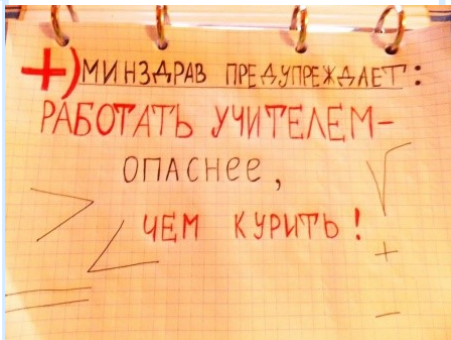 +) МИНЗДРАВ ПРЕДУПРЕЖДАЕТ:
РАБОТАТЬ УЧИТЕЛЕМ-
ОПАСНЕе,
ЧЕМ КУРИТЬ!
> < = √ + -